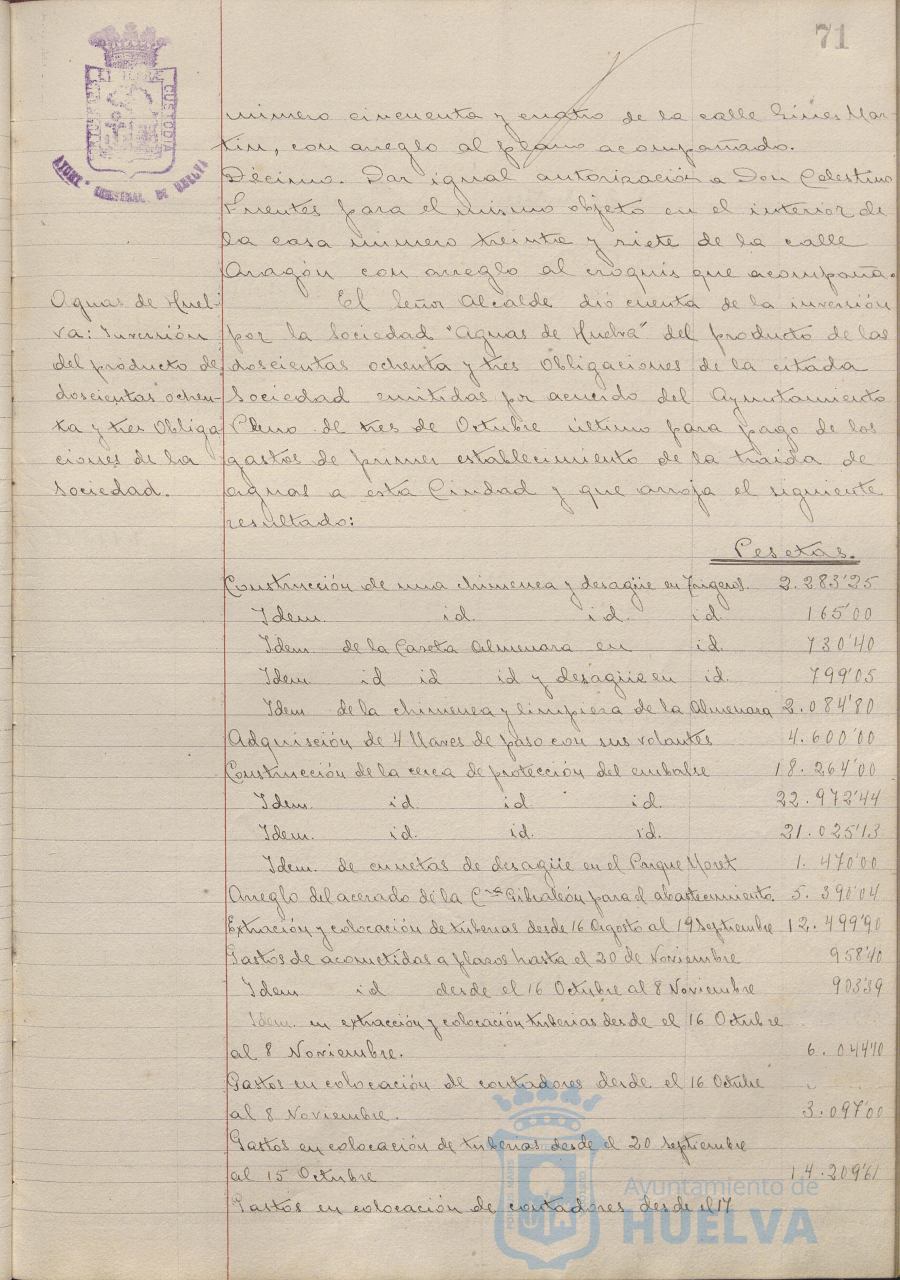 71
AYUNTº CONSTNAL. DE HUELVA
CUSTODIA
número cincuenta y cuatro de la calle Ginés Mar-
tín, con arreglo al plano acompañado.
Décimo. Dar igual autorización a Don Celestino
Fuentes para el mismo objeto en el interior de
la casa número treinta y siete de la calle
Aragón con arreglo al croquis que acompaña.
Aguas de Huel-
va: Inversión
del producto de
doscientas ochen-
ta y tres Obliga
ciones de la
Sociedad.
El Señor Alcalde dió cuenta de la inversión
por la Sociedad "Aguas de Huelva" del producto de las
doscientas ochenta y tres Obligaciones de la citada
Sociedad emitidas por acuerdo del Ayuntamiento
Pleno de tres de Octubre último para pago de los
gastos de primer establecimiento de la traida de
aguas a esta Ciudad y que arroja el siguiente
resultado:
Pesetas.
Construcción de una chimenea y desagüe en Trigeros. 2.283'25
Idem. id. id. id. 165'00
Idem de la Caseta Almenara en id. 730'40
Idem id id id y desagüe en id. 799'05
Idem de la chimenea y limpieza de la Almenara 2.084'80
Adquisción de 4 llaves de paso con sus volantes 4.600'00
Construcción de la cerca de protección del embalse 18.264'00
Idem. id. id. id. 22.972'44
Idem. id. id. id. 21.025'13
Idem. de cunetas de desagüe en el Parque Moret 1.470'00
Arreglo del acerado de la Cra Gibraleón para el abastecimiento. 5.390'04
Extración y colocación de tuberias desde 16 Agosto al 19 Septiembre 12.499'90
Gastos de acometidas a plazos hasta el 20 de Noviembre 958'40
Idem id desde el 16 Octubre al 8 Noviembre 903'39
Idem. en extracción y colocación tuberias desde el 16 Octubre
al 8 Noviembre. 6.044'10
Gastos en colocación de contadores desde el 16 Octubre
al 8 Noviembre. 3.097'00
Gastos en colocación de tuberias desde el 20 septiembre
al 15 Octubre 14.209'61
Gastos en colocación de contadores desde el 17
Ayuntamiento de
HUELVA